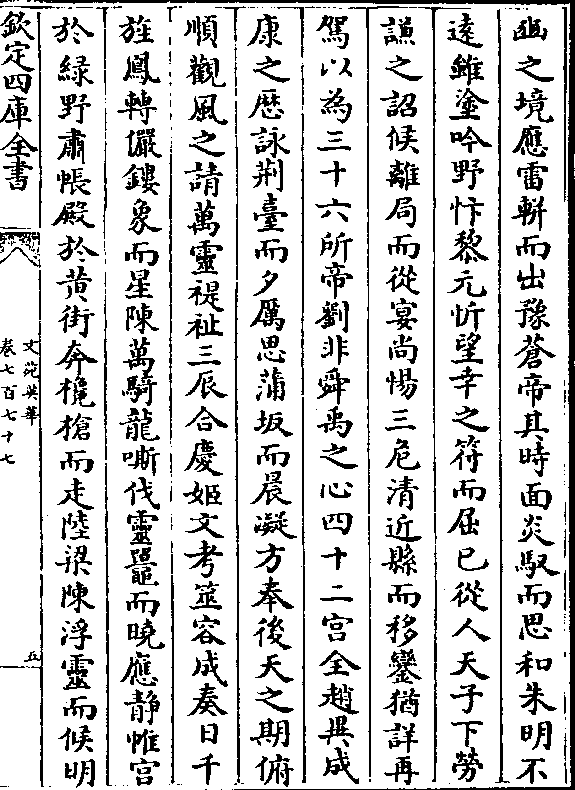 幽之境應雷軿而出豫蒼帝其時面炎馭而思和朱明不
遠雖塗吟野忭黎元忻望幸之符而屈已從人天子下勞
謙之詔候離局而從宴尚惕三危清近縣而移鑾猶詳再
駕以為三十六所帝劉非舜禹之心四十二宫全趙異成
康之歴詠荆臺而夕厲思蒲坂而晨凝方奉後天之期俯
順觀風之請萬靈禔祉三辰合慶姬文考筮容成奏日千
旌鳳轉儼鏤象而星陳萬騎龍嘶伐靈鼉而曉應静帷宫
於緑野肅帳殿於黄街奔欃槍而走陸梁陳浮靈而候明
欽定四庫全書
文苑英華
卷七百七十七
五